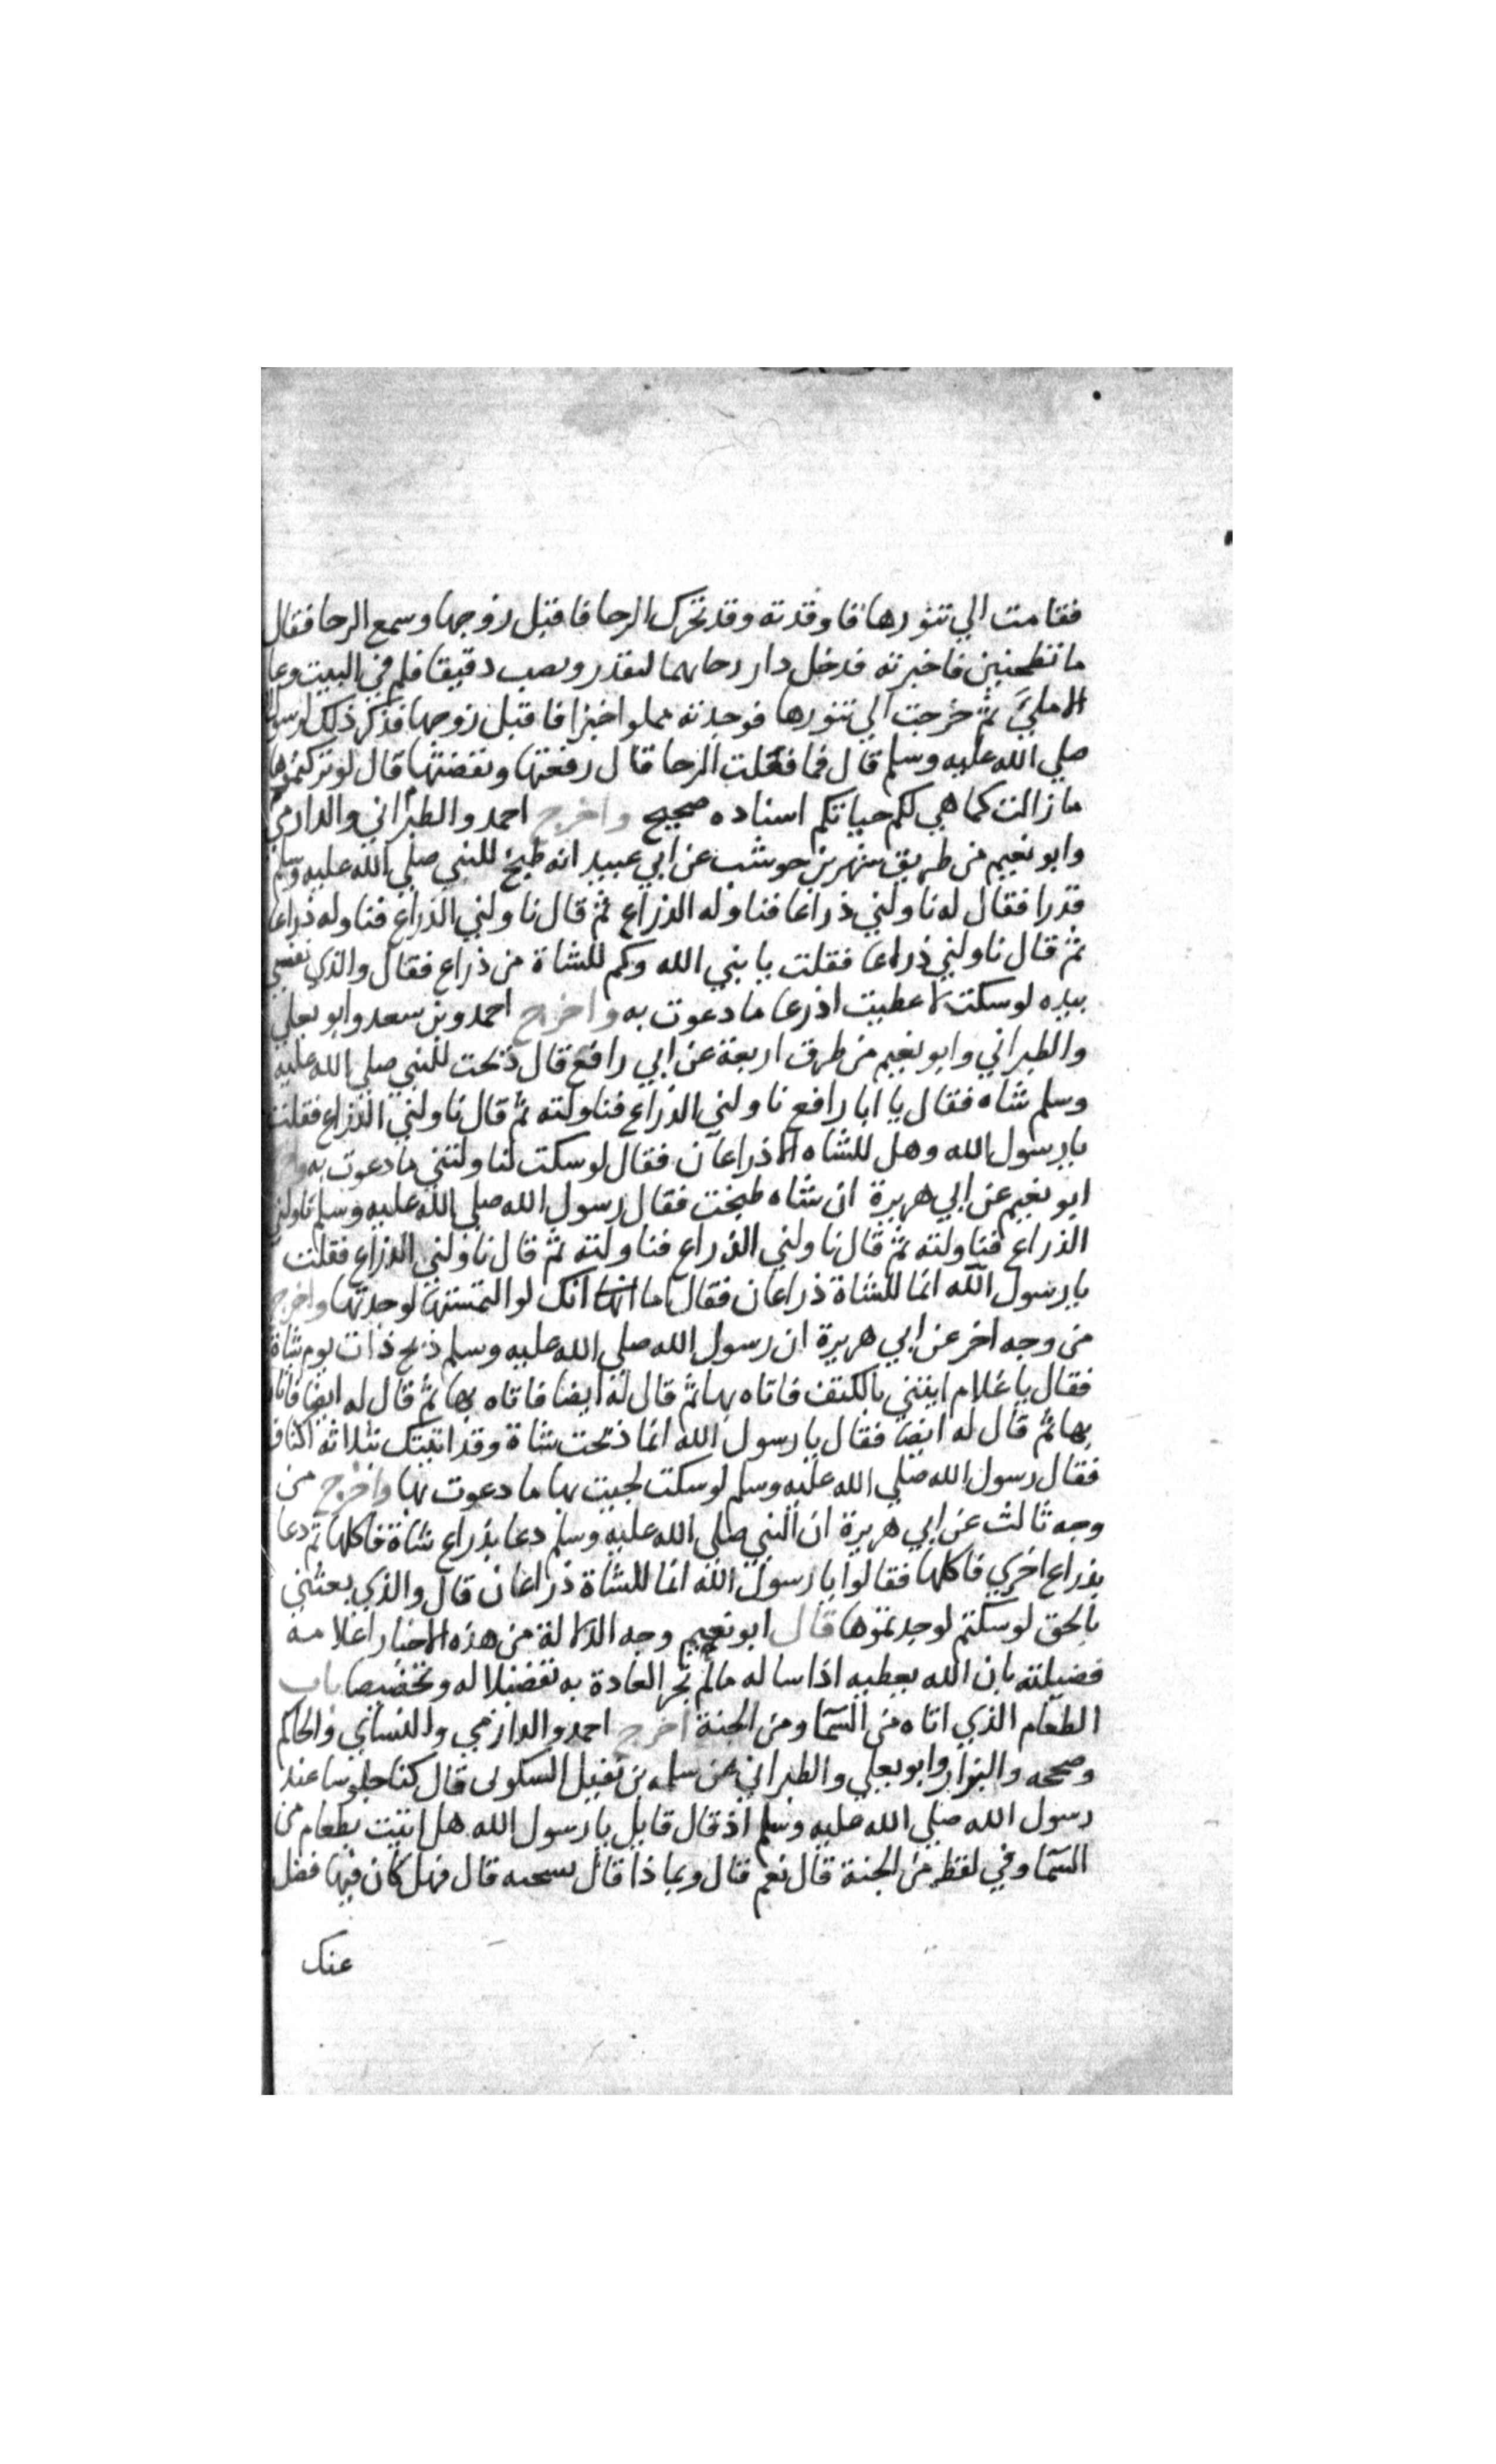 فقامت الي تنورها فاوقدته وقد تحرك الرحا فاقبل زوجها وسمع الرحا فقال
ما تطحنين فاخبرته فدخل دار رحاهما لتقدر وتصب دقيقا فلم في البيت وعا
الا ملئ ثم خرجت الي تنورها فوجدته مملوا خبزا فاقبل زوجها فذكر ذلك لرسول
صلي الله عليه وسلم قال فما فعلت الرحا قال رفعتها ونفضتها قال لو تركتموها
ما زالت كما هي لكم حياتكم اسناده صحيح واخرج احمد والطبراني والدارمي
وابو نعيم من طريق شهر بن حوشب عن ابي عبيد انه طبخ للنبي صلي الله عليه وسلم
قدرا فقال له ناولني ذراعا فناوله الذراع ثم قال ناولني الذراع فناوله ذراعا
ثم قال ناولني ذراعا فقلت يا نبي الله وكم للشاة من ذراع فقال والذي نفسي
بيده لو سكت لاعطيت اذرعا ما دعوت به واخرج احمد وبن سعد وابو يعلي
والطبراني وابو نعيم من طرق اربعة عن ابي رافع قال ذبحت للنبي صلي الله عليه
وسلم شاه فقال يا ابا رافع ناولني الذراع فناولته ثم قال ناولني الذراع فقلت
يا رسول الله وهل للشاه الا ذراعان فقال لو سكت لناولتني ما دعوت به
ابو نعيم عن ابي هريرة ان شاه طبخت فقال رسول الله صلي الله عليه وسلم ناولني
الذراع فناولته ثم قال ناولني الذراع فناولته ثم قال ناولني الذراع فقلت
يا رسول الله انما للشاة ذراعان فقال اما انك لو التمستها لوجدتها واخرج
من وجه اخر عن ابي هريرة ان رسول الله صلي الله عليه وسلم ذبح ذات يوم شاة
فقال يا غلام ايتني بالكتف فاتاه بها ثم قال له ايضا فاتاه بها ثم قال له ايضا فاتاه
بها ثم قال له ايضا فقال يا رسول الله انما ذبحت شاة وقد اتيتك بثلاثة اكتاف
فقال رسول الله صلي الله عليه وسلم لو سكت لجيت بها ما دعوت بها واخرج من
وجه ثالث عن ابي هريرة ان النبي صلي الله عليه وسلم دعا بذراع شاة فاكلها ثم دعا
بذراع اخري فاكلها فقالوا يا رسول الله انما للشاة ذراعان قال والذي بعثني
بالحق لو سكتم لوجدتموها قال ابو نعيم وجه الدلالة من هذه الاخبار اعلامه
فضيلته بان الله يعطيه اذا ساله مالم تجر العادة به تفضيلا له وتخصيصا باب
الطعام الذي اتاه من السما ومن الجنة اخرج احمد والدارمي والنساي والحاكم
وصححه والبزار وابو يعلي والطبراني عن سلمه بن نفيل السكوني قال كنا جلوسا عند
رسول الله صلي الله عليه وسلم اذ قال قايل يا رسول الله هل اتيت بطعام من
السما وفي لفظ من الجنة قال نعم قال وبما ذا قال بسحنه قال فهل كان فيها فضل
عنك